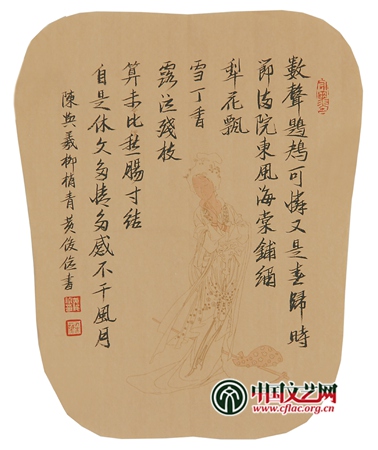 數聲鶗鴂可憐又是春歸時
節滿院東風海棠鋪繡
梨花飄
雪丁香
露泣殘枝
算未比愁腸寸結
自是休文多情多感不干風月
陳與義柳梢青黄俊儉書
中国文艺网
www.cflac.org.cn